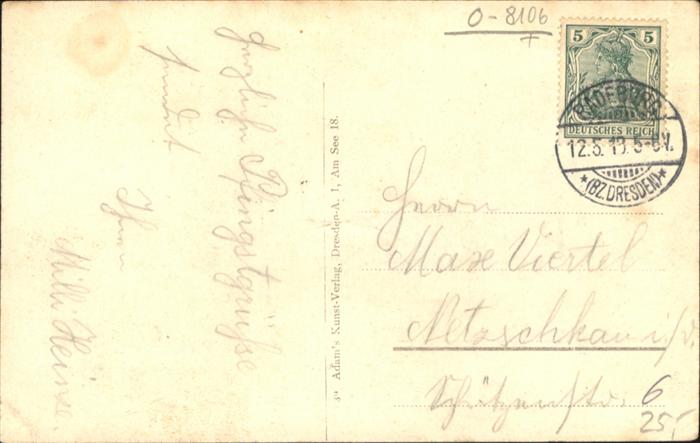 O-8106
5 5
DEUTSCHES REICH
RADEBURG
12.5.13.5-6N.
*(BZ.DRESDEN)*
Herzliche Pfingstgrüße
sendet
Ihnen
Milli Heinze.
Adam's Kunst-Verlag, Dresden-A. 1, Am See 18.
Herrn
Max Viertel
Netzschkau i/V.
Schützenstr. 6
25,-